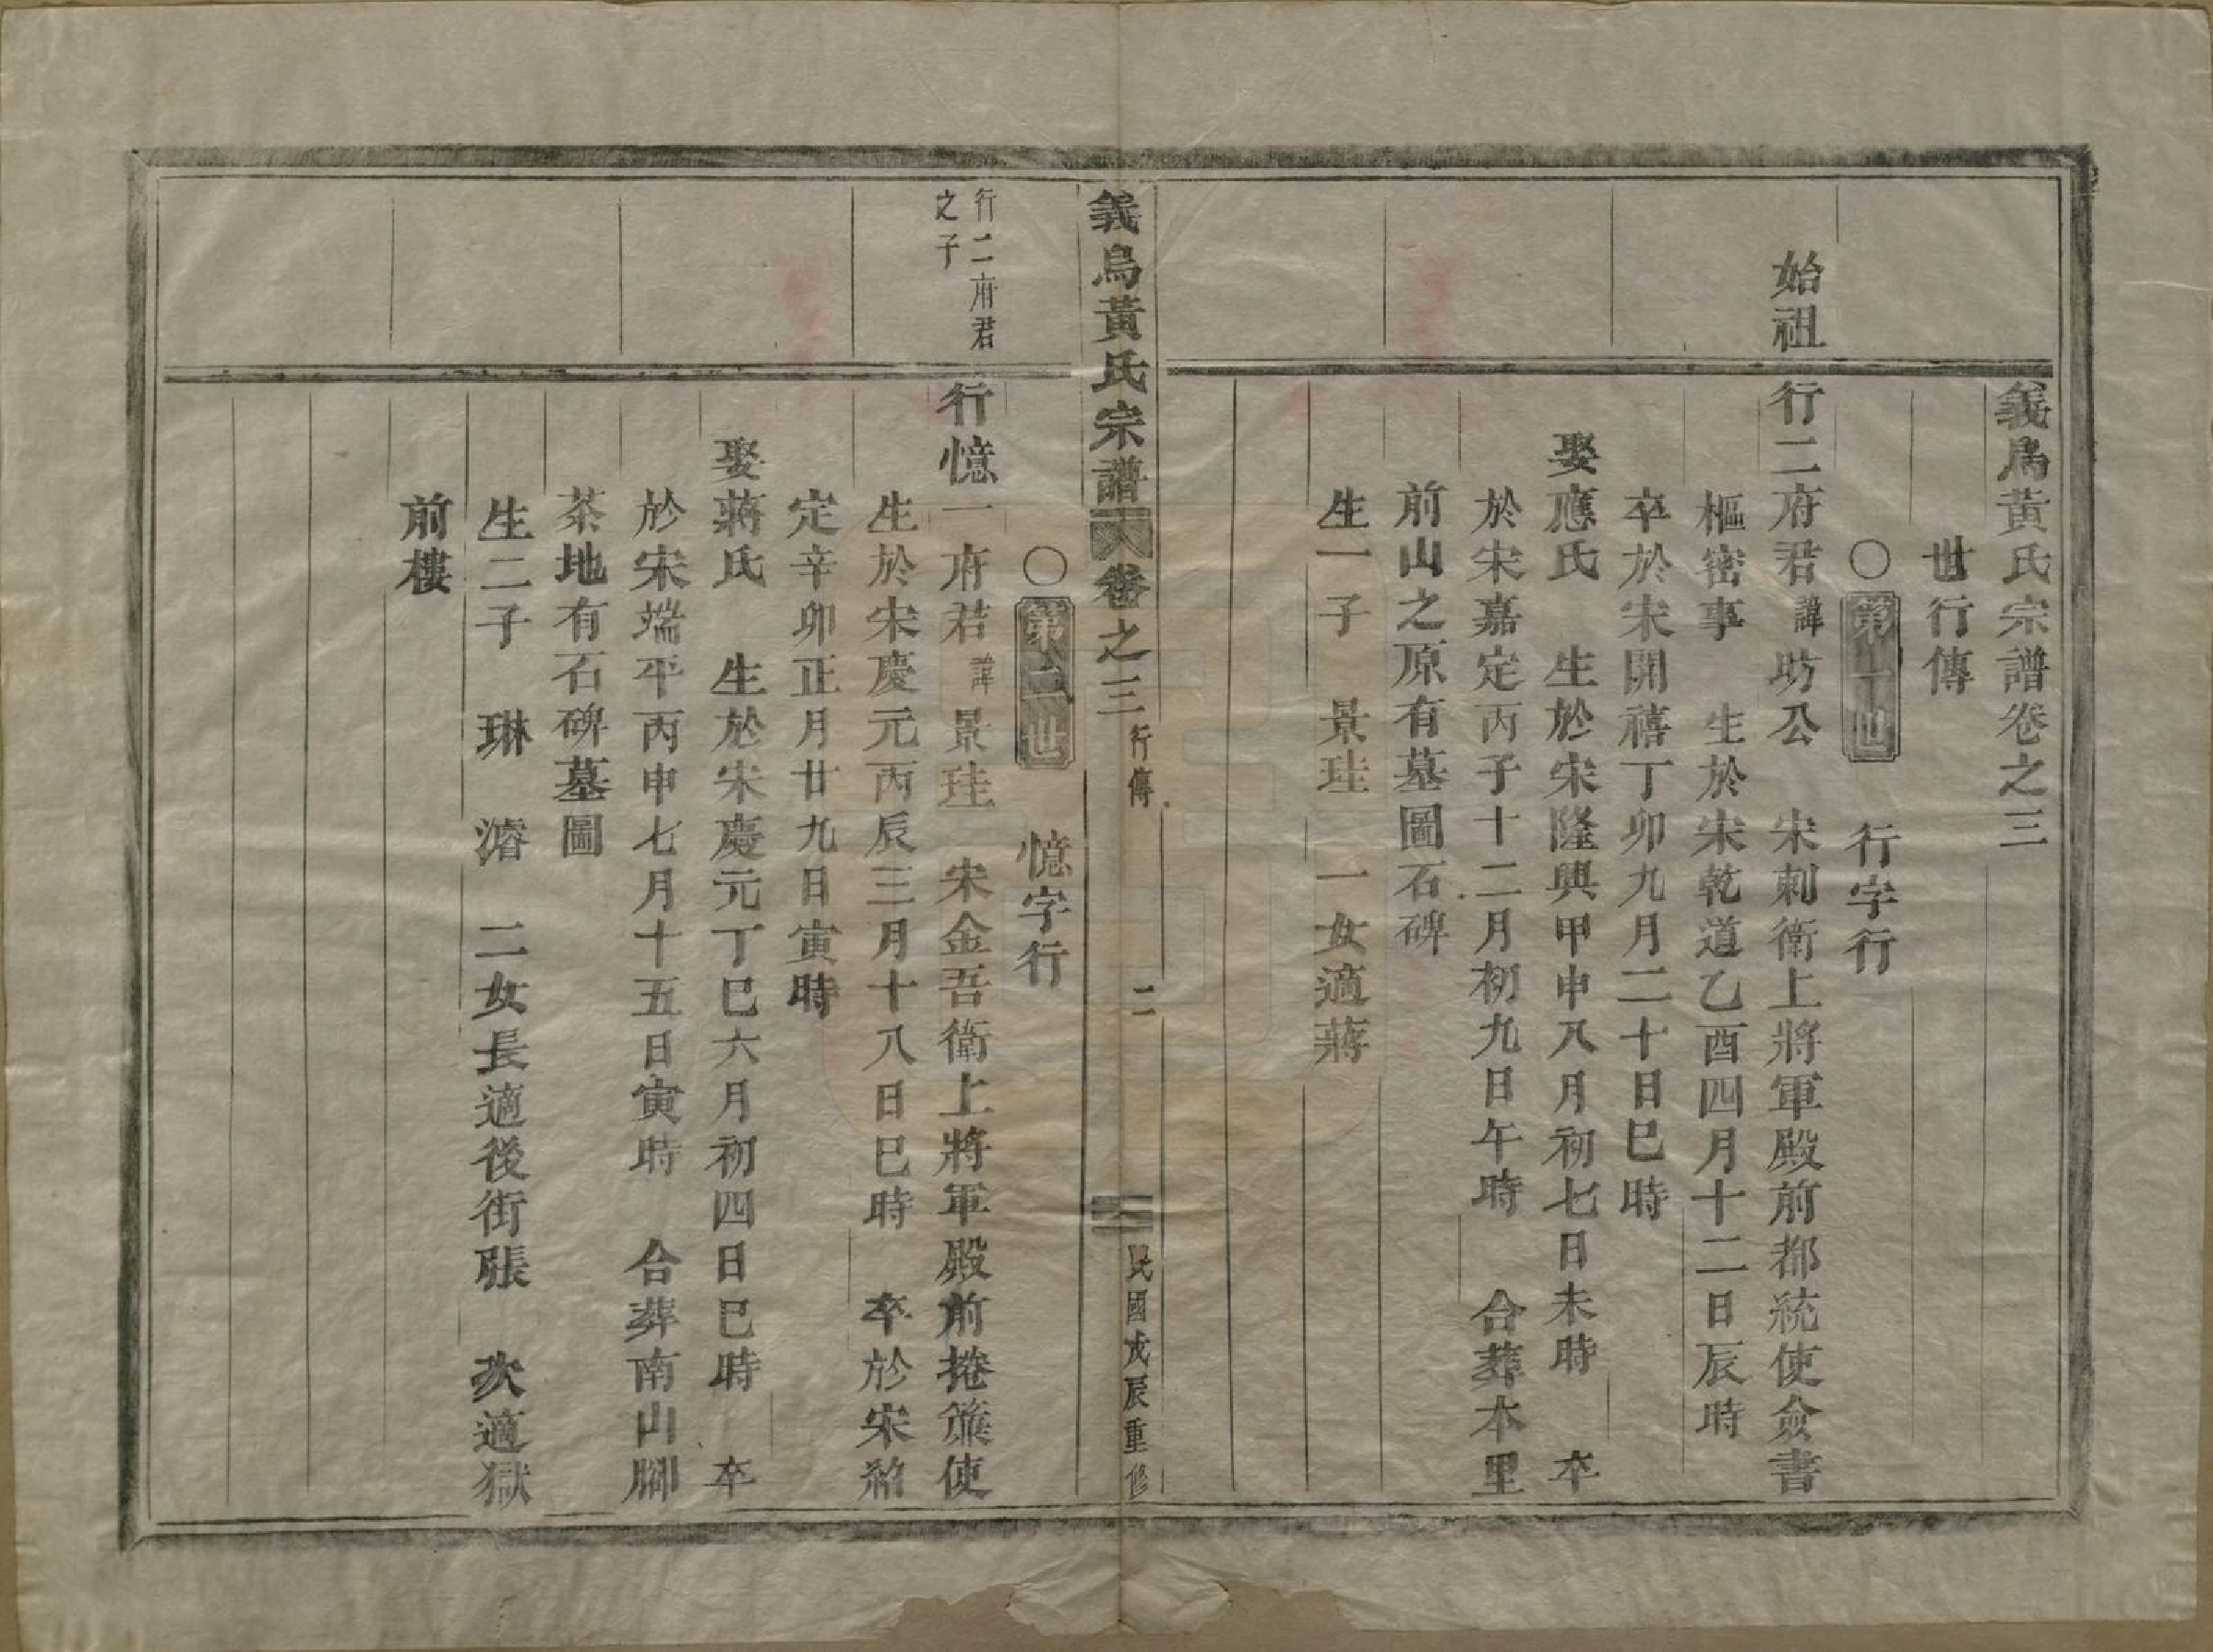 義烏黃氏宗譜卷之三
世行傳
○第一世　行字行
始祖
行二府君諱昉公　宋刺衛上將軍殿前都統使僉書
樞密事　生於宋乾道乙酉四月十二日辰時
卒於宋開禧丁卯九月二十日巳時
娶應氏　生於宋隆興甲申八月初七日未時　卒
於宋嘉定丙子十二月初九日午時　合葬本里
前山之原有墓圖石碑
生一子　景珪　一女適蔣
義烏黃氏宗譜　卷之三　行傳　二　民國戊辰重修
○第二世　憶字行
行二府君
之子
行憶一府君諱景珪　宋金吾衛上將軍殿前捲簾使
生於宋慶元丙辰三月十八日巳時　卒於宋紹
定辛卯正月廿九日寅時
娶蔣氏　生於宋慶元丁巳六月初四日巳時　卒
於宋端平丙申七月十五日寅時　合葬南山腳
茶地有石碑墓圖
生二子　琳　濬　二女長適後街張　次適獄
前樓